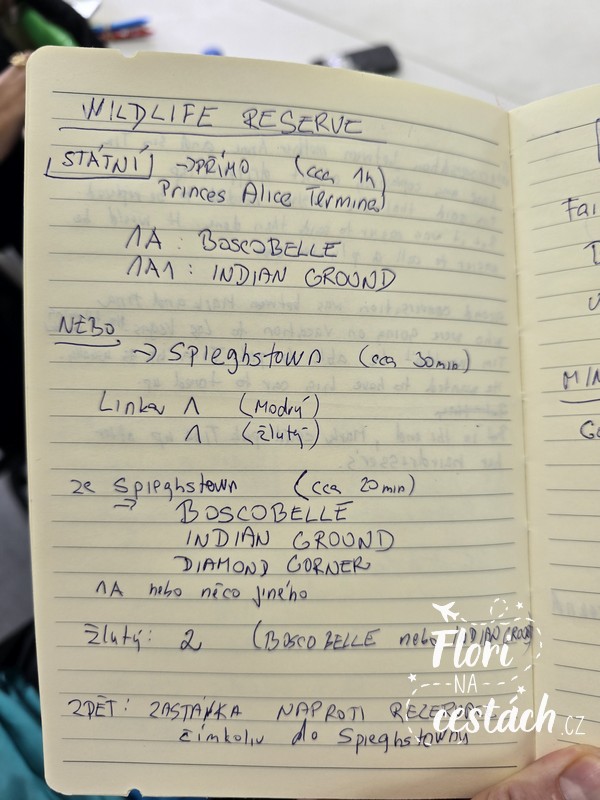 WILDLIFE RESERVE
STÁTNÍ → PŘÍMO (cca 1h)
Princes Alice Terminal
1A : BOSCOBELLE
1A1 : INDIAN GROUND
NEBO
→ Spieghstown (cca 30min)
Linka 1 (Modrý)
1 (žlutý)
ze Spieghstown (cca 20min)
→
BOSCOBELLE
INDIAN GROUND
DIAMOND CORNER
1A nebo něco jiného
Žlutý: 2 (BOSCOBELLE nebo INDIAN GROUND
ZPĚT: ZASTÁVKA NAPROTI REZERVACE
čímkoliv do Spieghstowny
Fai
MIN
Flori
NA
cestách.cz